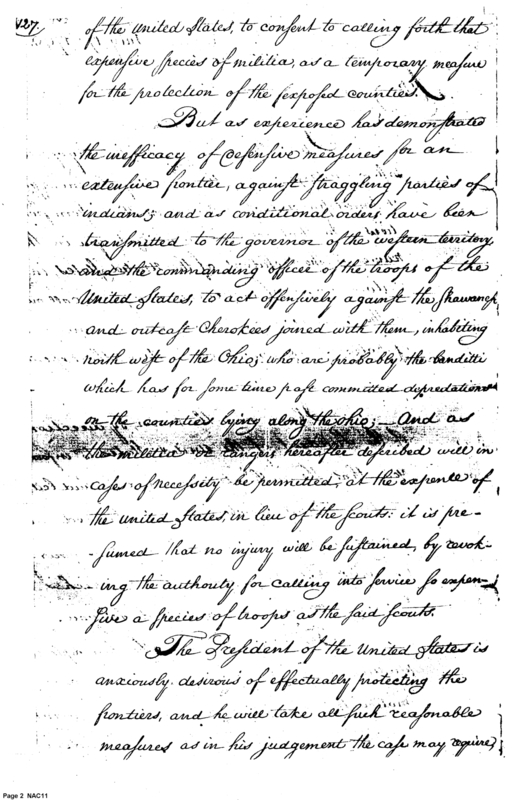 127.
of the United States, to consent to calling forth that
expensive species of militia, as a temporary measure
for the protection of the exposed counties.
But as experience has demonstrated
the inefficacy of defensive measures for an
extensive frontier, against straggling parties of
indians; and as conditional orders have been
transmitted to the governor of the western territory
and the commanding officer of the troops of the
United States, to act offensively against the Shawanese
and outcast Cherokees joined with them, inhabiting
north west of the Ohio; who are probably the banditti
which has for some time past committed depredations
on the counties lying along the Ohio; — And as
the militia or rangers hereafter described will in
cases of necessity be permitted, at the expence of
the United States, in lieu of the scouts: it is pre-
-sumed that no injury will be sustained, by revok-
-ing the authority for calling into service so expen-
sive a species of troops as the said scouts.
The President of the United States is
anxiously desirous of effectually protecting the
frontiers, and he will take all such reasonable
measures as in his judgement the case may require,
Page 2 NAC11